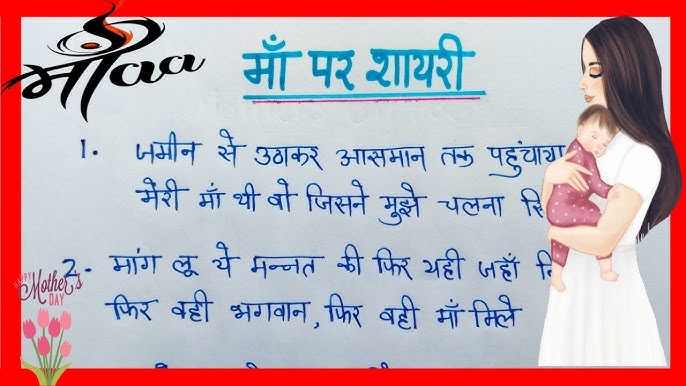 माँaa
माँ पर शायरी
1. जमीन से उठाकर आसमान तक पहुंचाया
मेरी माँ थी वो जिसने मुझे चलना
2. मांग लू ये मन्नत की फिर यही जहाँ
फिर वही भगवान, फिर वही माँ मिले
HAPPY
Mother's
DAY